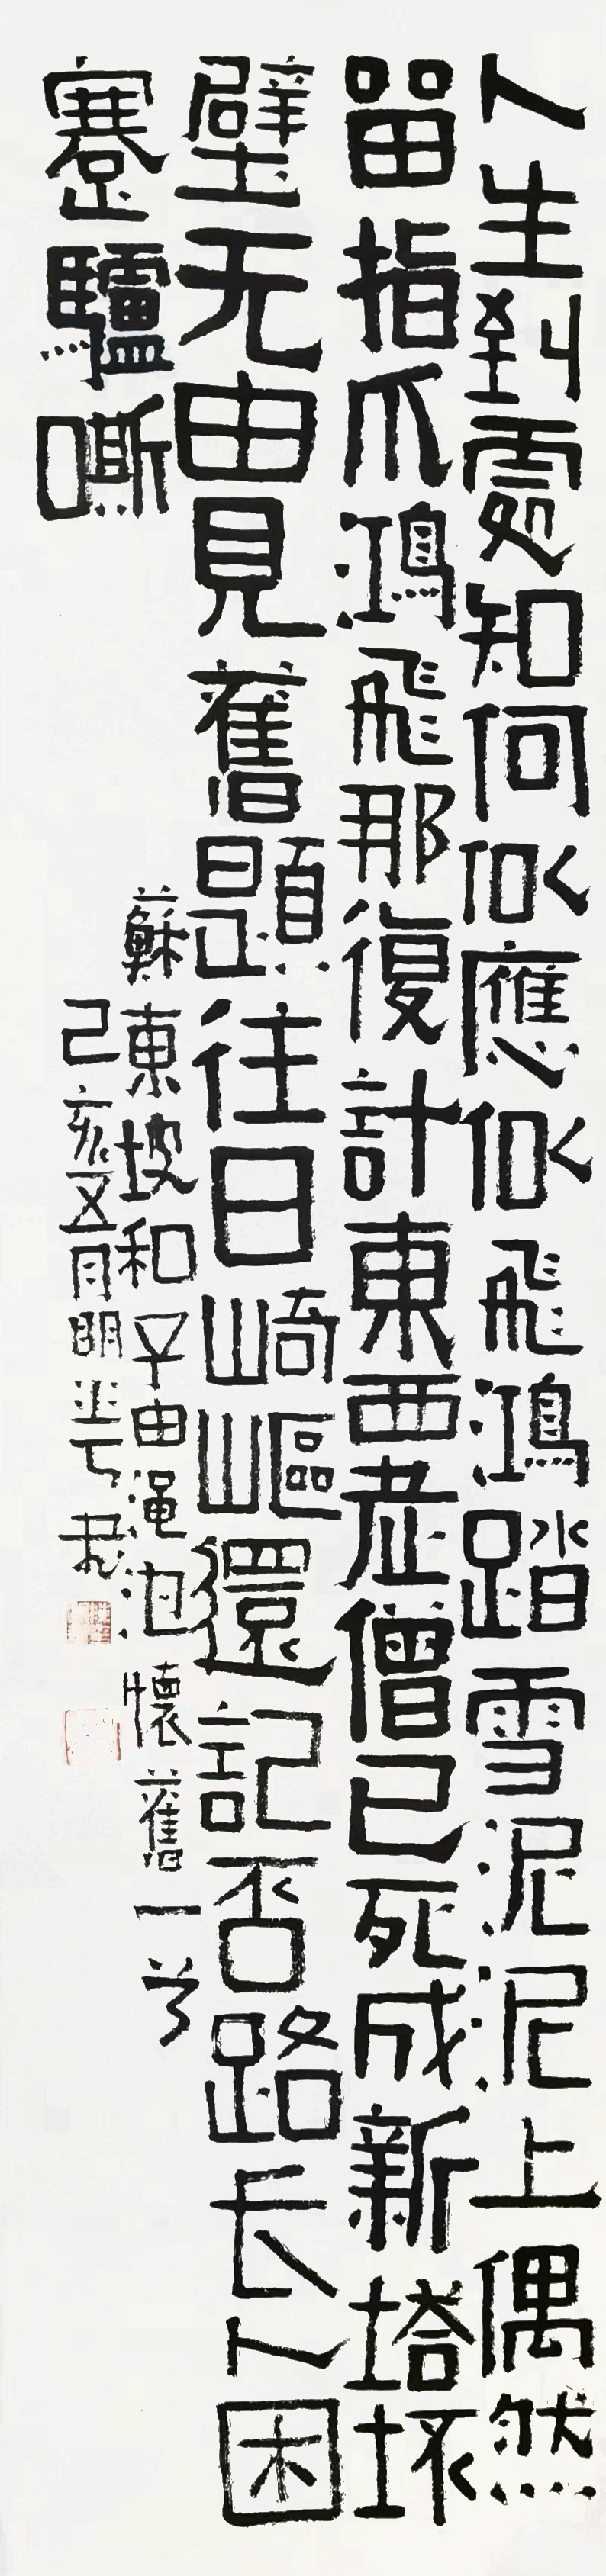 人生到處知何似應似飛鴻踏雪泥泥上偶然
畱指爪鴻飛那復計東西老僧已死成新塔坏
壁无由見舊題往日崎嶇還記否路长人困
蹇驢嘶
蘇東坡和子由渑池懷舊一首
己亥五月明